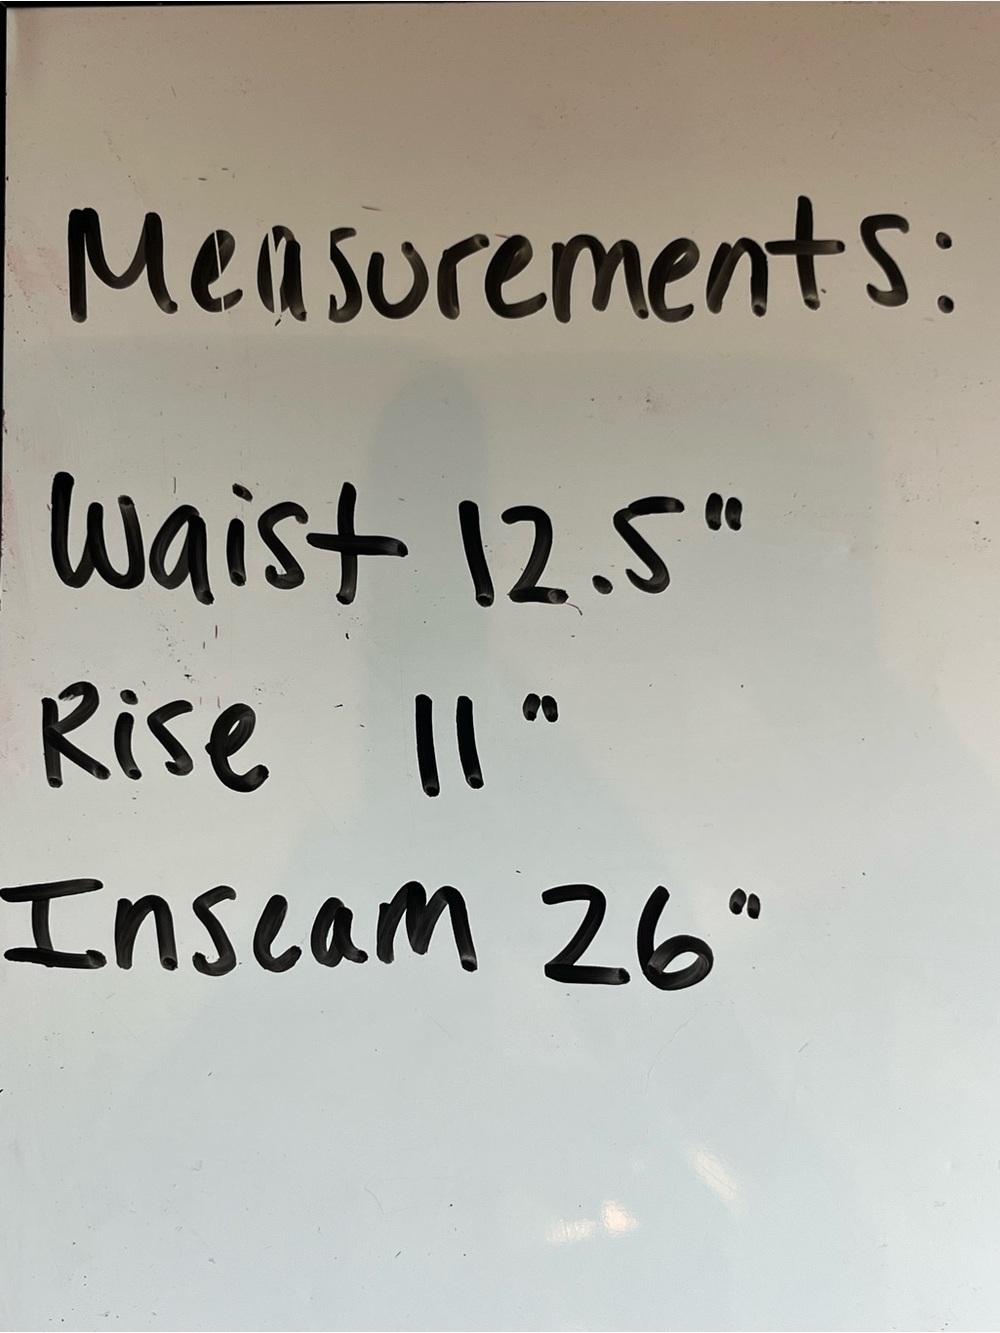 Measurements:
Waist 12.5"
Rise 11"
Inseam 26"